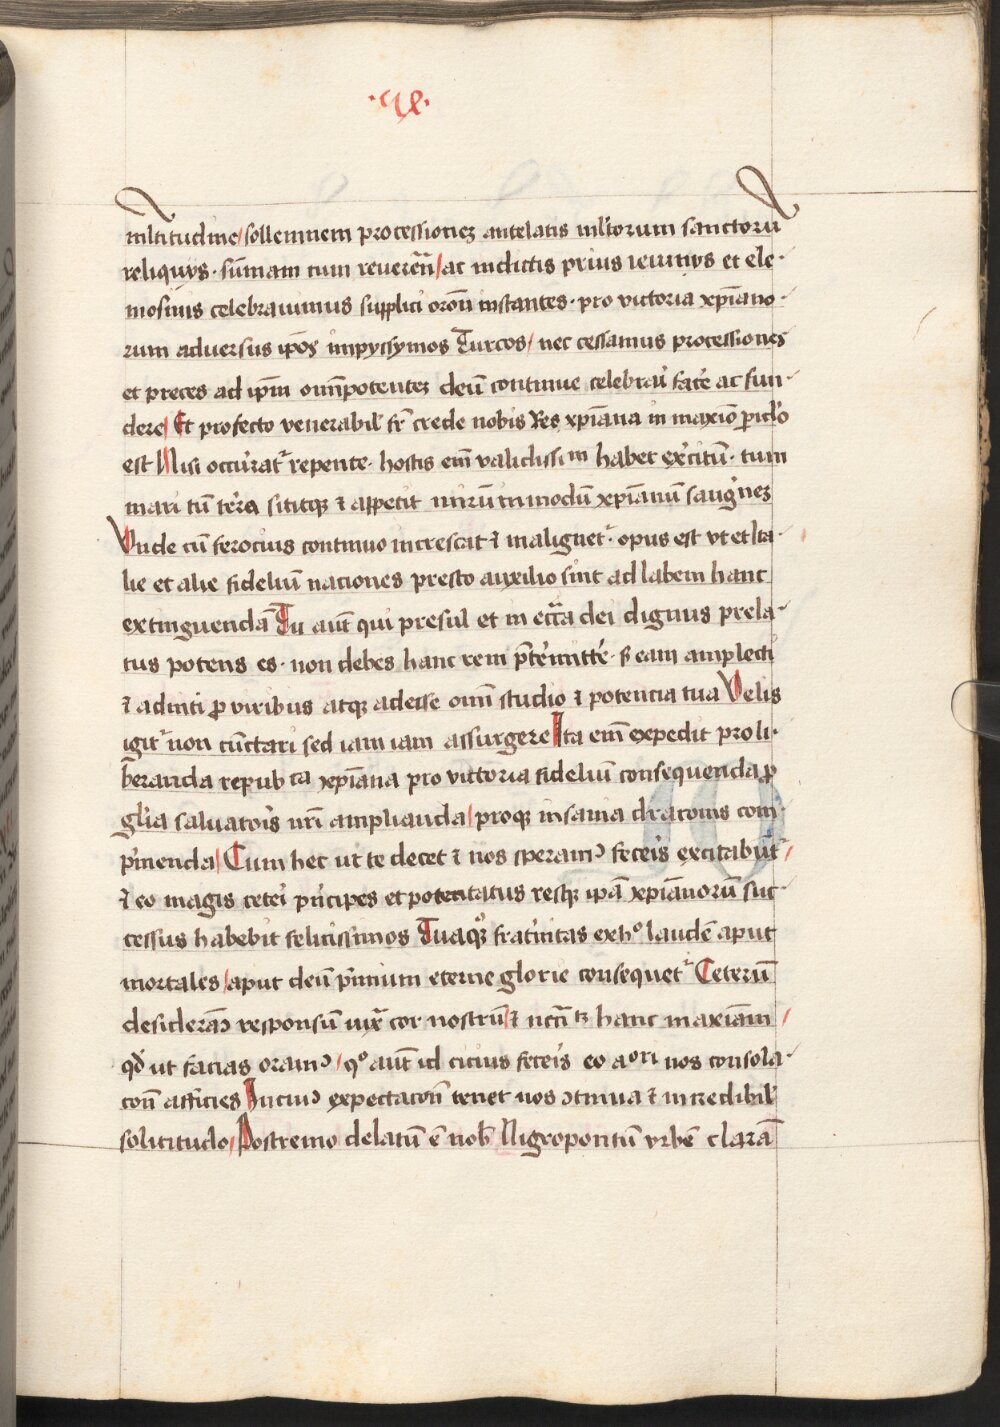 ·xl·
mltitudine sollemnem processionez antelatis mltorum sanctorū
reliquijs · sūmam cum reuerēn̄ ac indictis prius ieiunijs et ele·
mosinis celebrauimus supplici oron̄ instantes · pro victoria xpīano·
rum aduersus ip̄os impyssymos Turcos nec cessamus processiones
et preces ad ip̄m om̄potentez deū continue celebrar̄ facer̄e ac fun·
dere Et profecto venerabil' fr̄ crede nobis Res xpīana in maxīo p̄iclo
est Nisi occurat̄ repente · hostis em̄ validissim habet exercitū · tum
mari tū terra sititqꝫ ⁊ appetit mirū in modū xpīanū sangnez
Unde cū ferocius continuo increscat ⁊ malignet̄ · opus est vt et Ita·
lie et alie fideliū naciones presto auxilio sint ad labem hanc
extinguendā Tu aut̄ qui presul et in ecc̄a dei dignus prela·
tus potens es · non debes hanc rem p̄termitte · s̄ eam amplecti
⁊ adniti ꝓ viribus atqꝫ adesse om̄i studio ⁊ potencia tua Velis
igit̄ non cūctari sed iam iam assurgere Ita em̄ expedit pro li·
beranda repub ca xpīana pro victoria fideliū consequenda ꝓ
glīa saluatoris nr̄i amplianda proqꝫ insania draconis com·
p̄menda Cum hec ut te decet ⁊ nos speramꝰ feceris excitabūt̄
⁊ eo magis ceteri p̄ncipes et potentatus resqꝫ ip̄a xpīanorū suc·
cessus habebit felicissimos Tuaqꝫ fraternitas ex hᵒ laudē aput
mortales aput deū p̄mium eterne glorie consequet̄ Ceterū
desideramꝰ responsū iuxta cor nostrū ⁊ n̄cn̄ tꝫ hanc maxīam
qd̄ ut facias oramꝰ qᵒ aut̄ id cicius feceris eo aᵒri nos consola·
con̄ afficies Inciuꝰ expectacon̄ tenet nos ↄtinua ⁊ incredibil'
solicitudo Postremo delatū ē nob̄ Nigropontū vrbē clarā